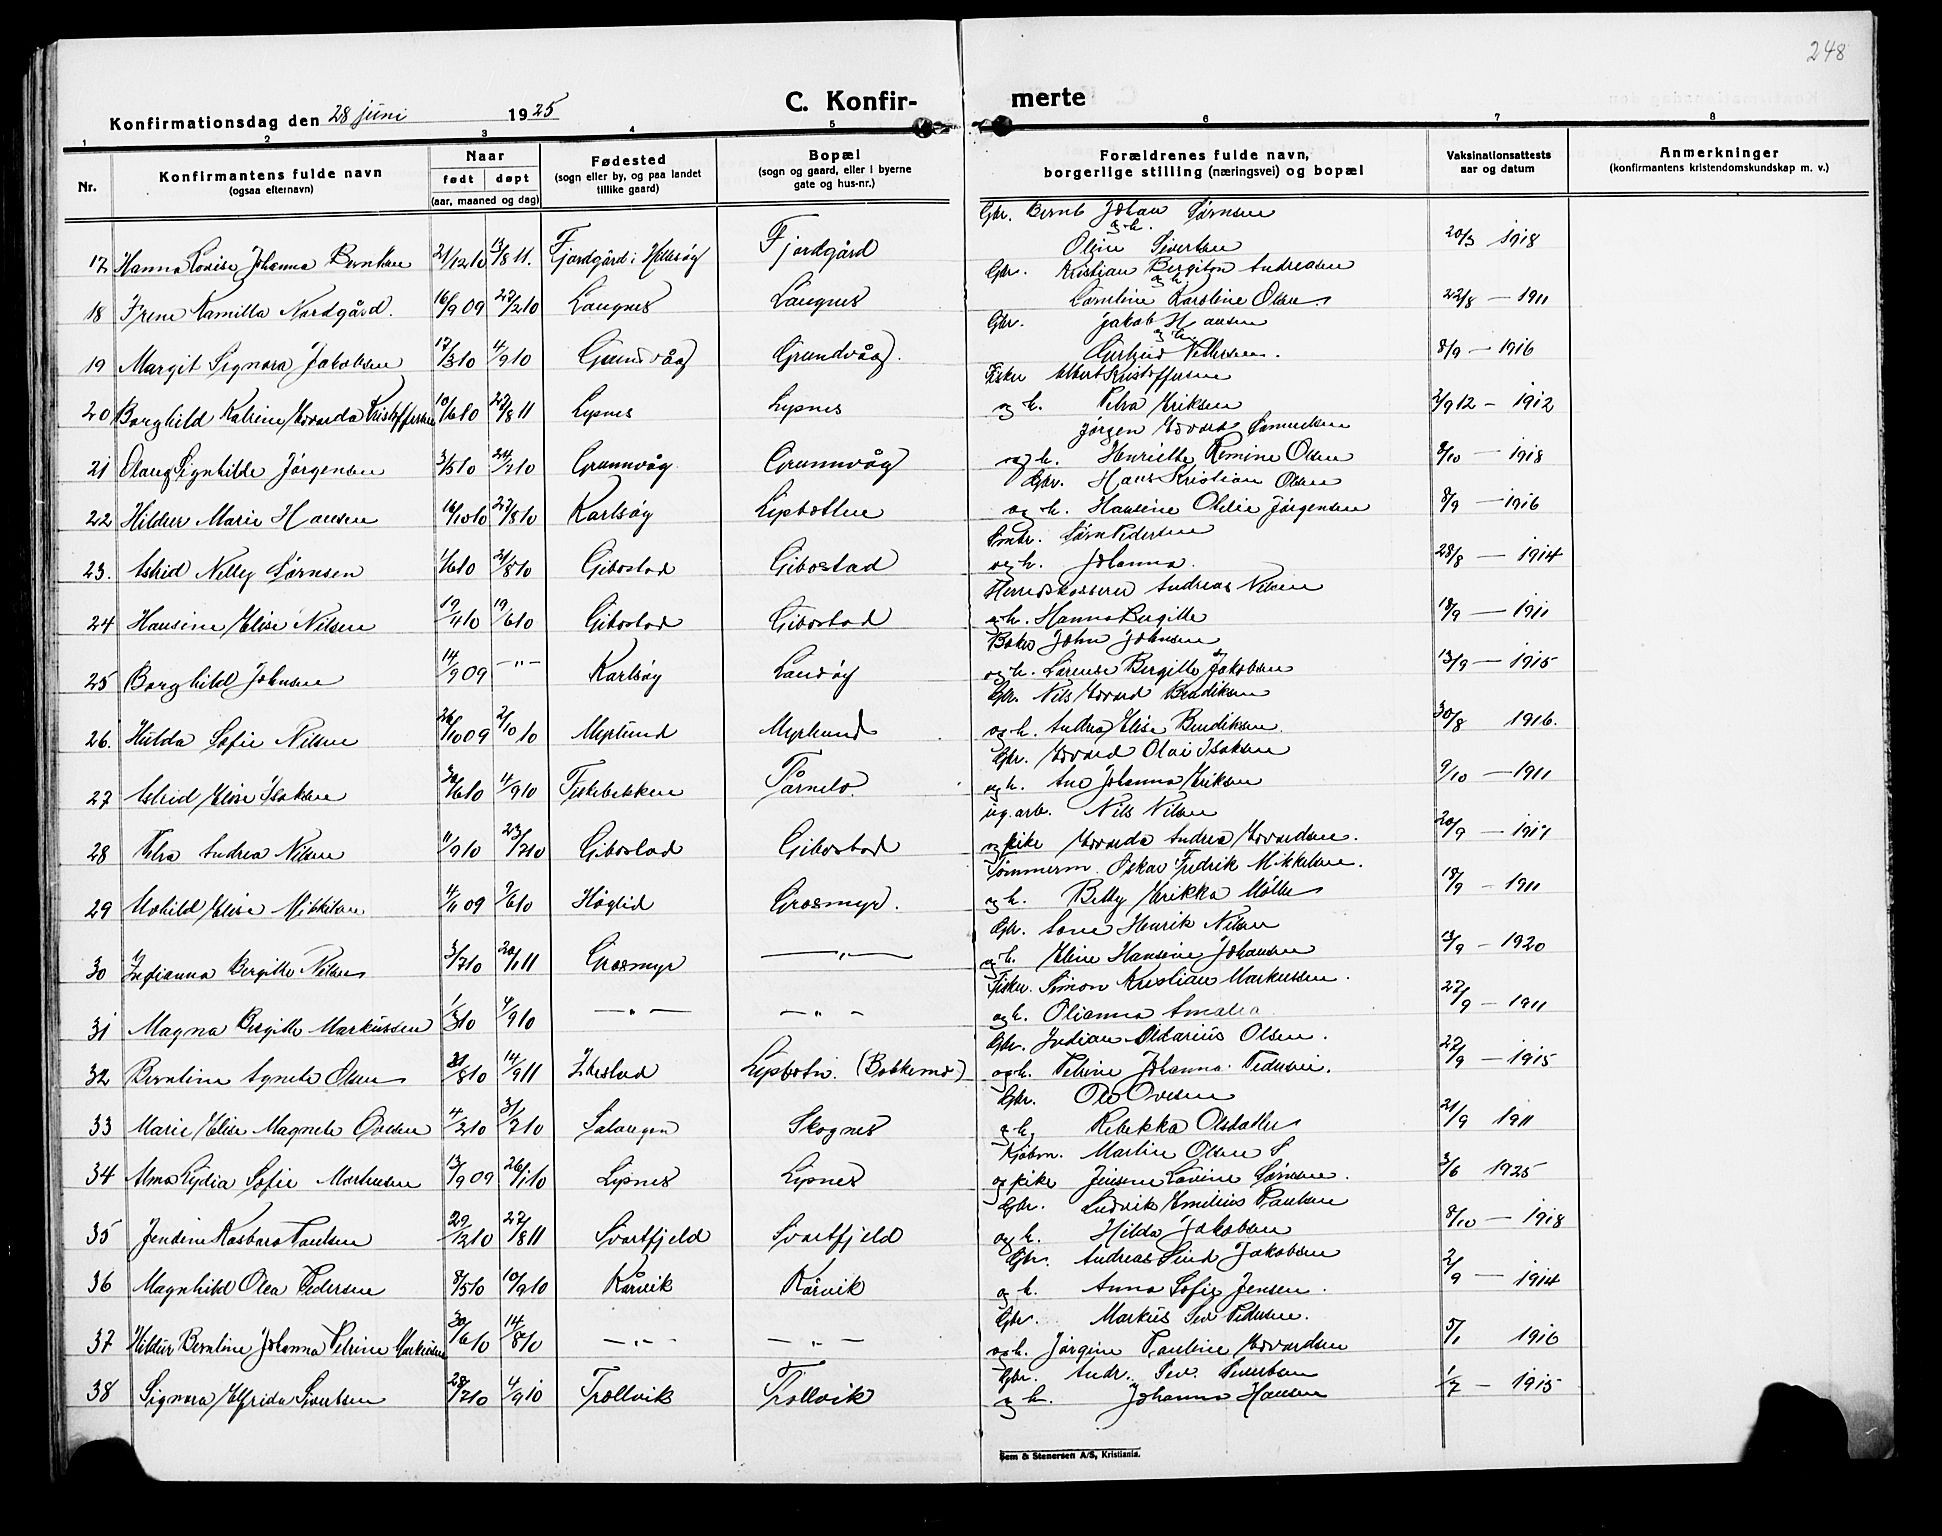 248
C. Konfir-merte
Konfirmationsdag den 28 juni 1925
1 2 3 4 5 6 7 8
Nr.
Konfirmantens fulde navn
(ogsaa efternavn)
Naar
født døpt
(aar, maaned og dag)
Fødested
(sogn eller by, og paa landet
tillike gaard)
Bopæl
(sogn og gaard, eller i byerne
gate og hus-nr.)
Forældrenes fulde navn,
borgerlige stilling (næringsvei) og bopæl
Vaksinationsattests
aar og datum
Anmerkninger
(konfirmantens kristendomskundskap m. v.)
Gbr. Bernt Johan Sørnsen
og h.
17 Hanna Lovise Johanna Berntsen 21/12 10 13/8 11. Fjordgård i Hillesøy Fjordgård Oline Sivertsen 20/3 1918
Gbr. Kristian Bergiton Andreasen
og h.
18 Irene Kamilla Nordgård. 16/9 09 27/2 10 Laugnes Laugnes Karoline Olsen 22/8 — 1911
Gbr. Jakob Hansen
og h.
19 Margit Signora Jakobsen 17/3 10 4/9 10 Grundvåg Grundvåg. Gertrud Pettersen. 8/9 — 1916
Fisker Albert Kristoffersen
20 Borghild Katrine Edvarda Kristoffersen 10/6 10 27/8 11 Lysnes Lysnes og h. Petra Eriksen 2/9 12 — 1912
Jørgen Edvard Samuelsen
21 Olaug Signhilde Jørgensen 3/5 10 24/7 10 Grunnvåg Grunnvåg og h. Henriette Remine Olsen 8/10 — 1918
Gbr. Hans Kristian Olsen
22 Hildur Marie Hansen 16/10 10 27/8 10 Karlsøy Lysbotten og h. Hansine Otelie Jørgensen 8/9 — 1916
Smbr. Sørn Pedersen
23. Astrid Nelly Sørnsen 1/6 10 21/8 10 Gibostad Gibostad og h. Johanna. 28/8 — 1914
Herredskasserer Andreas Nilsen
24 Hansine Elise Nilsen 19/4 10 19/6 10 Gibostad Gibostad og h. Hanna Bergitte 18/9 — 1911
Baker John Johnsen
25 Borghild Johnsen 14/9 09 — " — Karlsøy Sandøy og h. Lorense Bergitte Jakobsen 13/9 — 1915
Gbr. Nils Edvard Bendiksen
26. Hulda Sofie Nilsen 26/10 09 2/10 10 Myrlund Myrlund og h. Andrea Elise Bendiksen. 30/8 1916.
Gbr. Edvard Olai Isaksen
27 Astrid Elise Isaksen 30/6 10 4/9 10 Fiskebekken Tårnelo. og h. Ane Johanna Eriksen 9/10 — 1911
ug. arb. Nils Nilsen
28 Petra Andrea Nilsen 11/9 10 23/7 10 Gibostad Gibostad og pike Edvarda Andrea Edvardsen. 20/9 — 1917
Tømmerm. Oskar Fredrik Mikkelsen.
29 Elise Mikkelsen 4/11 09 7/6 10 Høglid Grasmyr. og h. Betsy Erikka Møller 18/9 — 1911
Gbr. Sone Henrik Nilsen
30 Indianna Bergitte Nilsen 3/7 10 20/1 11 Grasmyr — " — og h. Eline Hansine Johansen 13/9 — 1920
Fisker. Simon Kristian Markussen.
31 Magna Bergitte Markussen 1/3 10 4/9 10 — " — — " — og h. Olianna Amalia 27/9 — 1911
Gbr. Indian Aldarius Olsen.
32 Berntine Agnete Olsen 31/8 10 14/9 11 Ibestad Lysbotn. (Bakkemo) og h. Petrine Johanna Pedersen. 27/9 — 1915
Gbr. Ole Ovesen
33 Marie Elise Magnele Ovesen 4/2 10 31/7 10 Salangen Skognes og h. Rebekka 21/9 1911
Kjøbm. Martin Olsen S
34 Alma Lydia Sofie Martinsen 13/9 09 26/1 10 Lysnes Lysnes og pike Jensine Lovine Sørnsen. 3/6 1925
Gbr. Ludvik Emelius Paulsen
35 Jendine Kasbara Paulsen 29/12 10 27/8 11 Svartfjeld Svartfjeld og h. Hilda Jakobsen 8/10 — 1918
Gbr. Andreas Sind Jakobsen
36 Magnhild Olea Pedersen 8/5 10 10/9 10 Kårvik Kårvik og h. Anna Sofie Jensen. 2/9 — 1914
Gbr. Markus Sev Pedersen.
37 Hildur Berntine Johanna Petrine Markussen 30/6 10 14/8 10 — " — — " — og h. Jørgine Pauline Edvardsen 5/1 1916
Gbr. Andr. Sev. Sivertsen
38 Signora Elfrida Sivertsen 28/7 10 4/9 10 Trollvik Trollvik og h. Johanna Hansen 1/7 — 1915
Sem & Stenersen A/S, Kristiania.